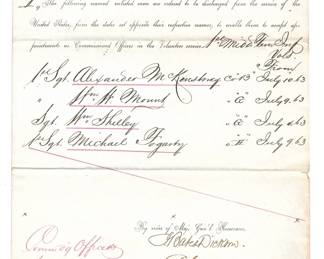 The following named enlisted men are ordered to be discharged from the service of the
United States, from the dates set opposite their respective names, to enable them to accept ap-
pointments as Commissioned Officers in the volunteer service.
1st Midd Ten Inf
Vols.
From
1st Sgt. Alexander McKowstney Co "B" July 10.63
" Wm H. Mount " "a" July 9.63
Sgt Wm Shilley " "a" July 6.63
1st Sgt. Michael Fogarty " "H" July 9.63
By order of Maj. Gen'l Rosecrans.
Comm'd'g Officer